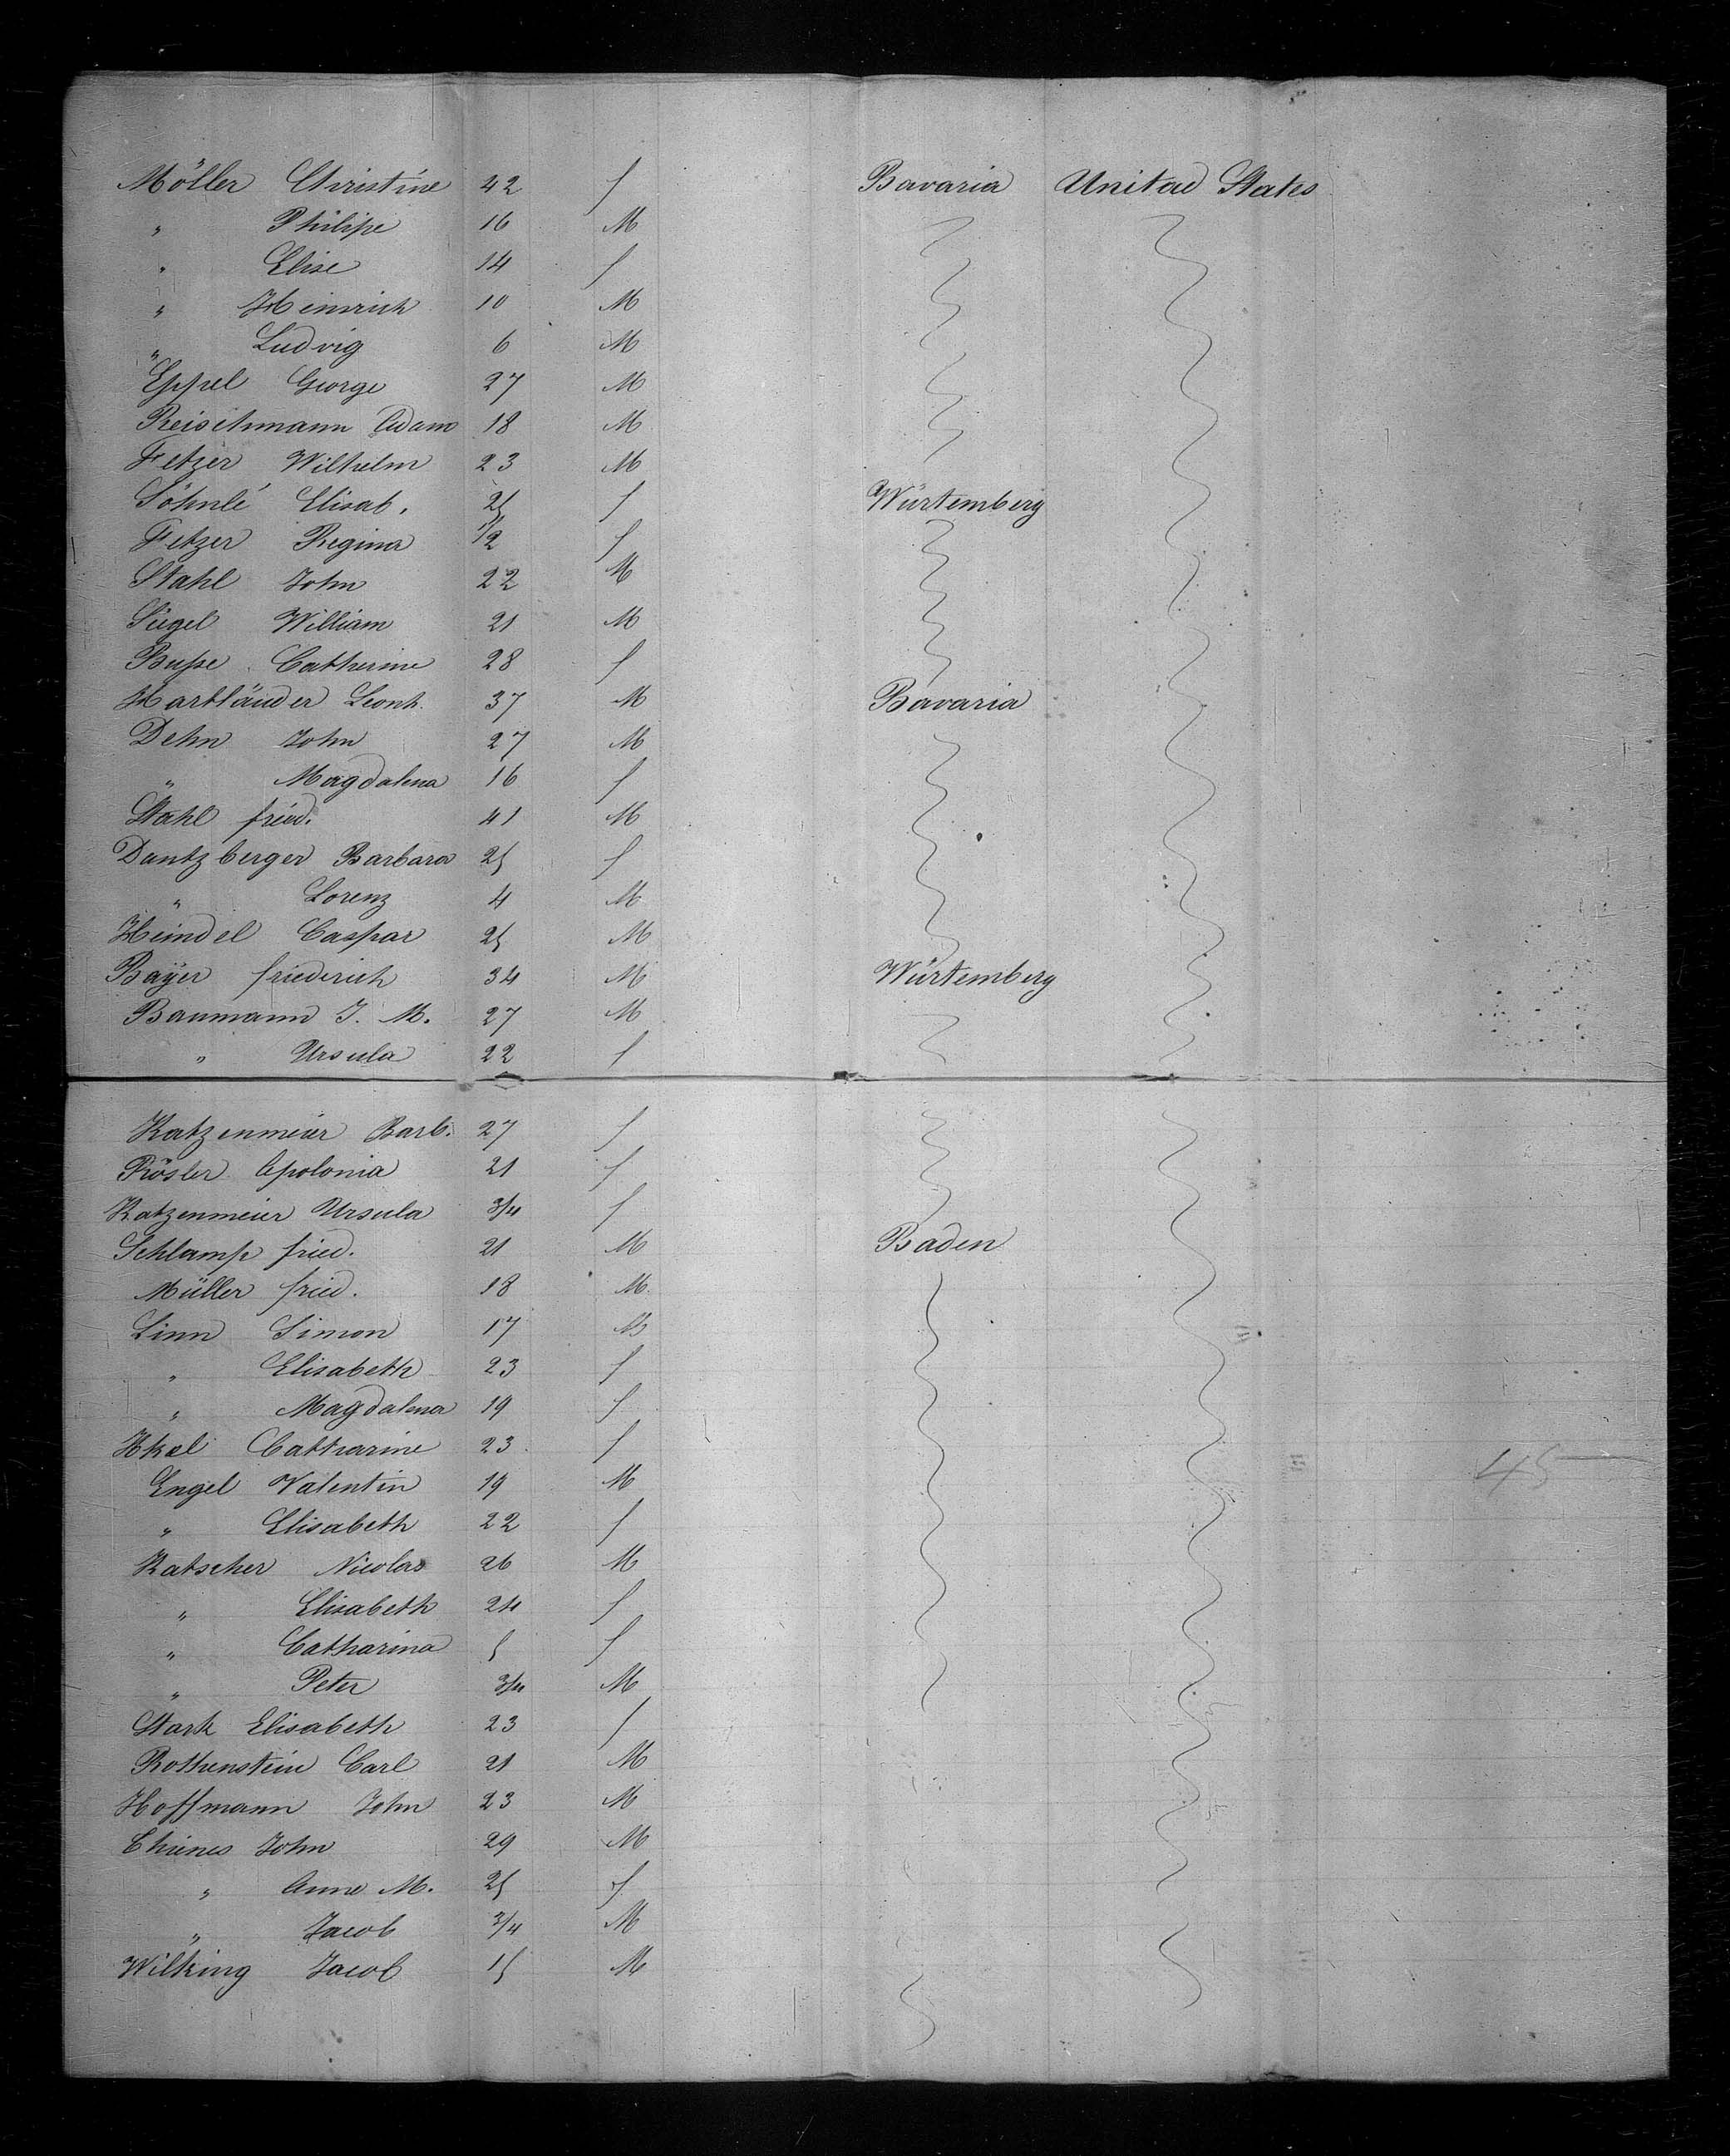 Möller Christine 42 f Bavaria Unitad States
" Philipe 16 M
" Elise 14 f
" Heinrich 10 M
" Ludvig 6 M
Eppel George 27 M
Reischmann Adam 18 M
Fetzer Wilhelm 23 M
Söhnlé Elisab. 25 f Würtemberg
Fetzer Regina 1/2 f
Stahl John 22 M
Siegel William 21 M
Busse Catherine 28 f
Hartländer Leonh. 37 M Bavaria
Dehn John 27 M
" Magdalena 16 f
Stahl fried. 41 M
Dantzberger Barbara 25 f
" Lorenz 4 M
Heindel Caspar 25 M
Bayer friederich 34 M Würtemberg
Baumann J. M. 27 M
" Ursula 22 f
Katzenmeier Barb. 27 f
Rösler Apolonia 21 f
Katzenmeier Ursula 3/4 f
Schlamp fried. 21 M Baden
Müller fried. 18 M
Linn Simon 17 M
" Elisabeth 23 f
" Magdalena 19 f
Catharine 23 f
Engel Valentin 19 M
" Elisabeth 22 f
Katscher Nicolas 26 M
" Elisabeth 24 f
" Catharina 5 f
" Peter 3/4 M
Stark Elisabeth 23 f
Rothenstein Carl 21 M
Hoffmann John 23 M
John 29 M
" Anne M. 25 f
" Jacob 3/4 M
Wilking Jacob 15 M
45